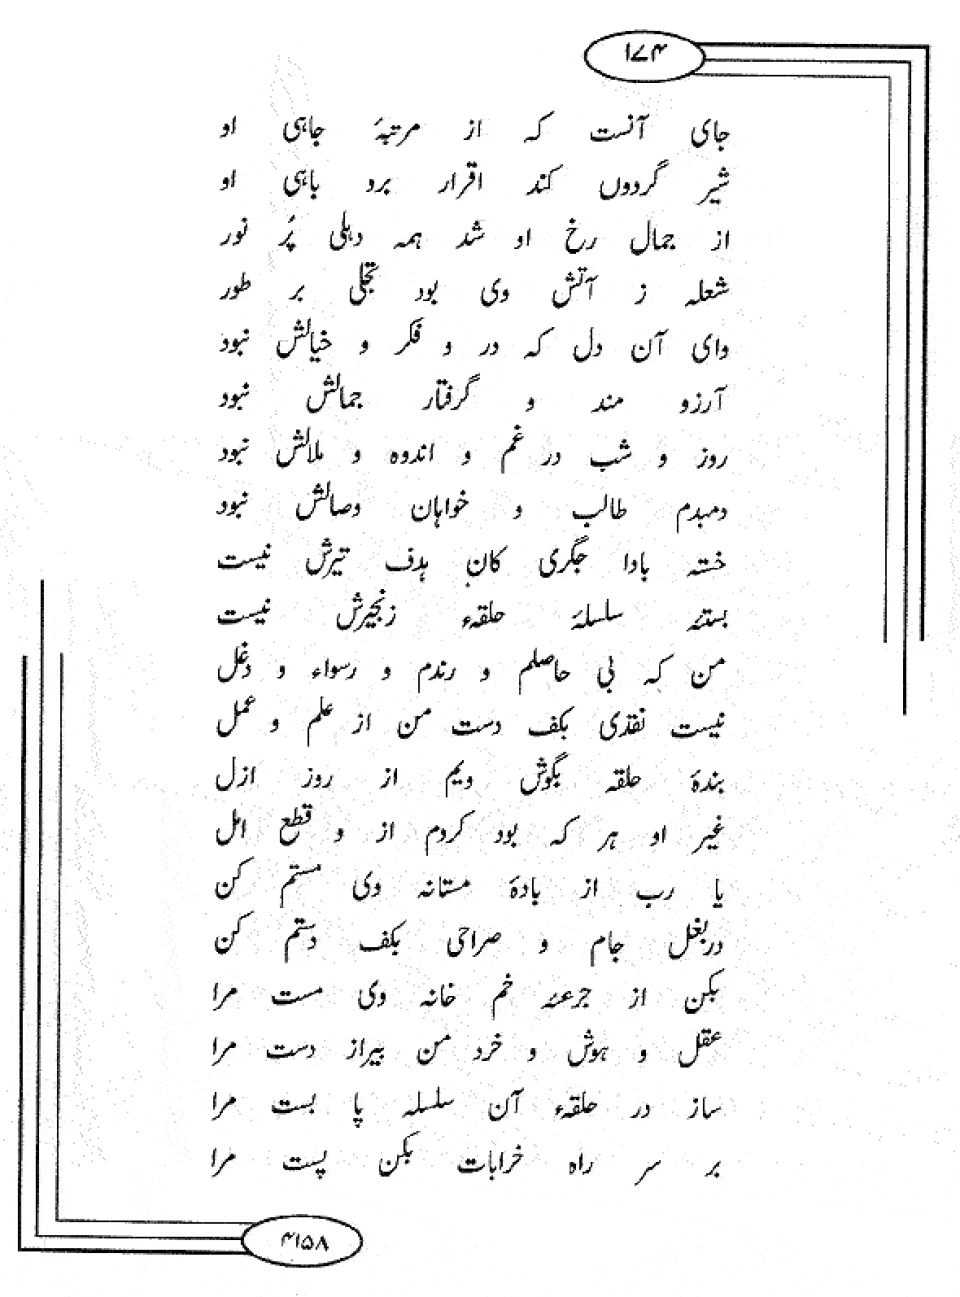 ۱۷۴
جای آنست کہ از مرتبۂ جاہی او
شیر گردوں کند اقرار برد باہی او
از جمال رخ او شد ہمہ دہلی پُر نور
شعلہ ز آتش وی بود تجلی بر طور
وای آن دل کہ در و فکر و خیالش نبود
آرزو مند و گرفتار جمالش نبود
روز و شب در غم و اندوہ و ملالش نبود
دمبدم طالب و خواہان وصالش نبود
خستہ بادا جگری کان ہدف تیرش نیست
بستئہ سلسلۂ حلقہء زنجیرش نیست
من کہ بی حاصلم و رندم و رسواء و دغل
نیست نقدی بکف دست من از علم و عمل
بندۂ حلقہ بگوش ویم از روز ازل
غیر او ہر کہ بود کردم از و قطع امل
یا رب از بادۂ مستانہ وی مستم کن
دربغل جام و صراحی بکف دستم کن
بکن از جرعئہ خم خانہ وی مست مرا
عقل و ہوش و خرد من بیراز دست مرا
ساز در حلقہء آن سلسلہ پا بست مرا
بر سر راہ خرابات بکن پست مرا
۴۱۵۸